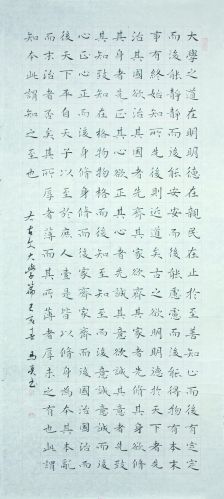 大學之道在明明德在親民在止於至善知止而後有定定
而後能靜靜而後能安安而後能慮慮而後能得物有本末
事有終始知所先後則近道矣古之欲明明德於天下者先
治其國欲治其國者先齊其家欲齊其家者先修其身欲修
其身者先正其心欲正其心者先誠其意欲誠其意者先致
其知致知在格物物格而後知至知至而後意誠意誠而後
心正心正而後身修身修而後家齊家齊而後國治國治而
後天下平自天子以至於庶人壹是皆以修身為本其本亂
而末治者否矣其所厚者薄而其所薄者厚未之有也此謂
知本此謂知之至也
右古文大學篇